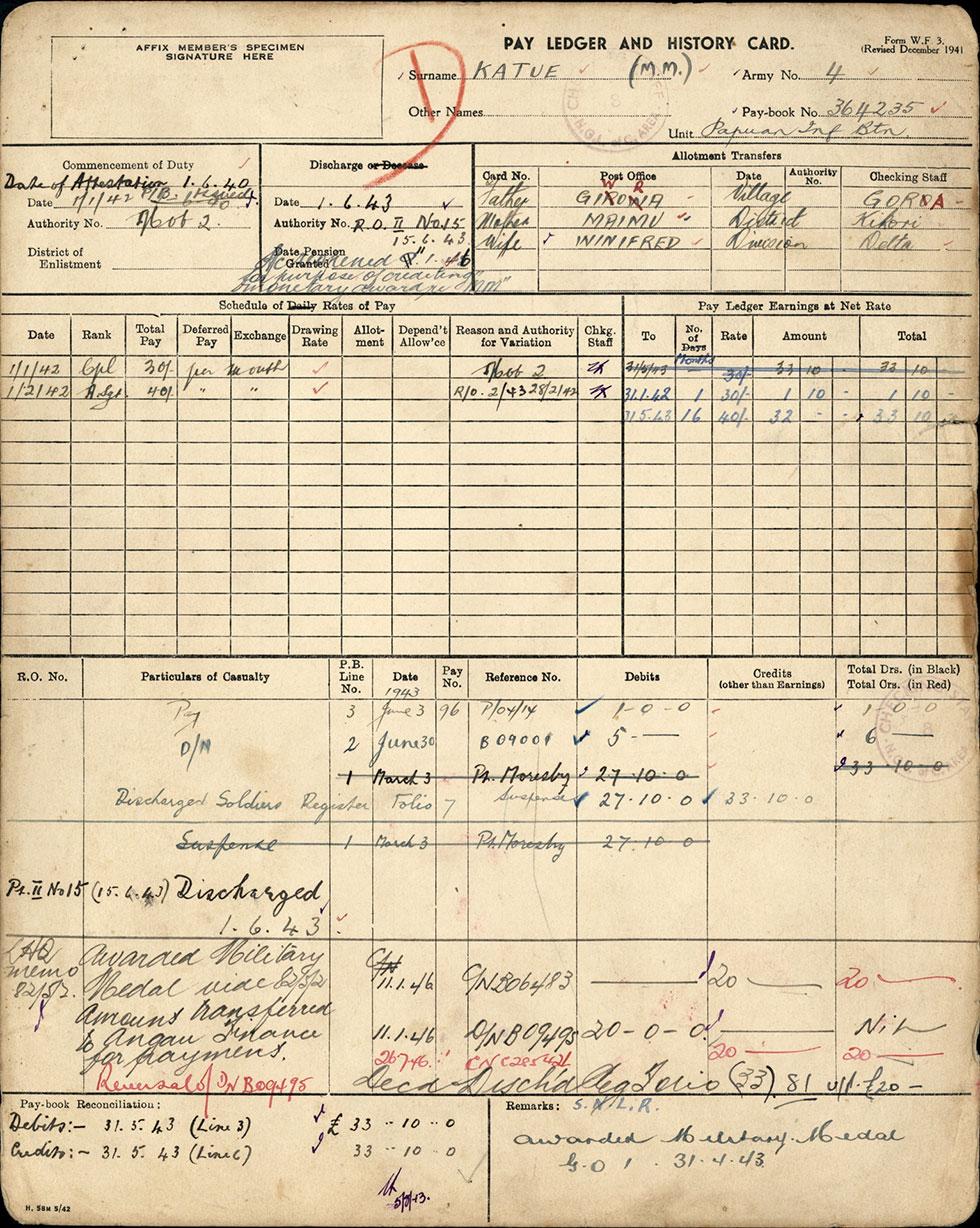 AFFIX MEMBER'S SPECIMEN
SIGNATURE HERE
D
PAY LEDGER AND HISTORY CARD.
Form W.F. 3.
(Revised December 1941
Surname KATUE (M.M.) Army No. 4
Other Names Pay-book No. 364235
Unit Papuan Inf Btn.
Commencement of Duty
Date of Attestation 1.6.40
Date 1/1/42 P/B. issued
Authority No. Mob 2.
District of
Enlistment
Discharge or Decease
Date 1.6.43
Authority No. R.O. II No.15
15.6.43
Date Pension
Granted
Re-opened 11.1.46
for purpose of crediting
monetary award re "MM"
Allotment Transfers
Card No. Post Office Date Authority No. Checking Staff
Father GIROWA Village GORRA
Mother MAIMU District Kikori
Wife WINIFRED Division Delta
Schedule of Daily Rates of Pay
Pay Ledger Earnings at Net Rate
Date Rank Total Pay Deferred Pay Exchange Drawing Rate Allot-ment Depend't Allow'ce Reason and Authority for Variation Chkg. Staff To No. of Days Rate Amount Total
Months
1/1/42 Cpl 30/- per month Mob 2 31/5/43 30/- 33 10 - 33 10 -
1/2/42 A.Sgt. 40/- " " R/O. 2/43 28/2/42 31.1.42 1 30/- 1 10 - 1 10 -
31.5.43 16 40/- 32 - - 33 10 -
R.O. No. Particulars of Casualty P.B. Line No. Date Pay No. Reference No. Debits Credits (other than Earnings) Total Drs. (in Black) Total Crs. (in Red)
1943
Pay 3 June 3 96 P/04/14 1-0-0 1-0-0
D/N 2 June 30 B 09001 5 - — 6 —
1 March 3 Pt. Moresby 27-10-0 33-10-0
Discharged Soldiers Register Folio 7 Suspense 27.10.0 33.10.0
Suspense 1 March 3 Pt. Moresby 27.10 0
Pt. II No 15 (15.6.43) Discharged
1.6.43
LHQ memo 82/5/2. Awarded Military
Medal vide 82/5/2 C/N 11.1.46 C/N B06483 — 20 — 20 —
Amount transferred
to Angau Finance 11.1.46 D/N B09495 20-0-0 — Nil
for payment. 26.7.46 20 — 20 —
Reversal of D/N B09495 Decd Dischd Reg Folio (33) 81 £20 -
Pay-book Reconciliation:
Debits:- 31.5.43 (Line 3) £ 33 -- 10 -- 0
Credits:- 31.5.43 (Line 6) 33 -- 10 -- 0
Remarks: S.N.L.R.
Awarded Military Medal
G.O 1. 31.4.43
H. 58M 5/42